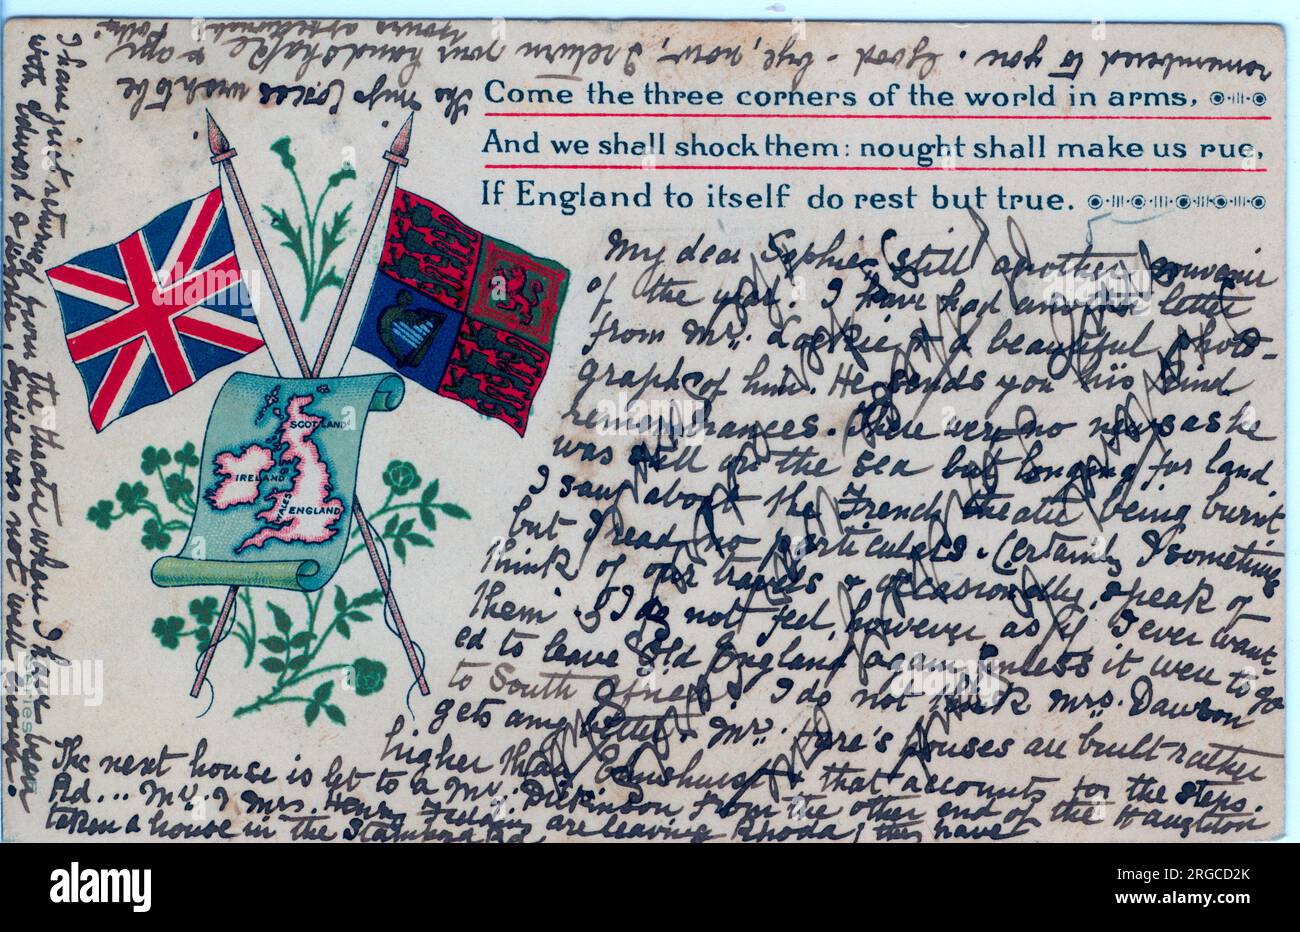 Come the three corners of the world in arms,
And we shall shock them: nought shall make us rue,
If England to itself do rest but true.
SCOTLAND
IRELAND
WALES
ENGLAND
My dear Sophie, Still another souvenir
of the year. I have had another letter
from Mr. & a beautiful photo-
graph of him. He sends you his kind
remembrances. There were no news as he
was still on the sea but longing for land.
I saw about the French theatre being burnt,
but I read no particulars. Certainly I sometimes
think of our travels & occasionally speak of
them. I do not feel, however, as if I ever want-
ed to leave Old England again unless it were to go
to South Africa. I do not think Mrs. Dawson
gets any better. Mr. Hare's houses are built rather
higher than & that accounts for the steps.
The next house is let to a Mr. Dickinson from the other end of the Haughton
Rd... Mr. & Mrs. Henry Fielding are leaving Rhoda, they have
taken a house in the Stamford Rd
I have just returned from the theatre where I have been
with Edward & Lizzie was not well enough.
The Misses wish to be
remembered to you. Good-bye, now, I return your handshake & am
Yours affectionately
Polly
alamy
Image ID: 2RGCD2K
www.alamy.com